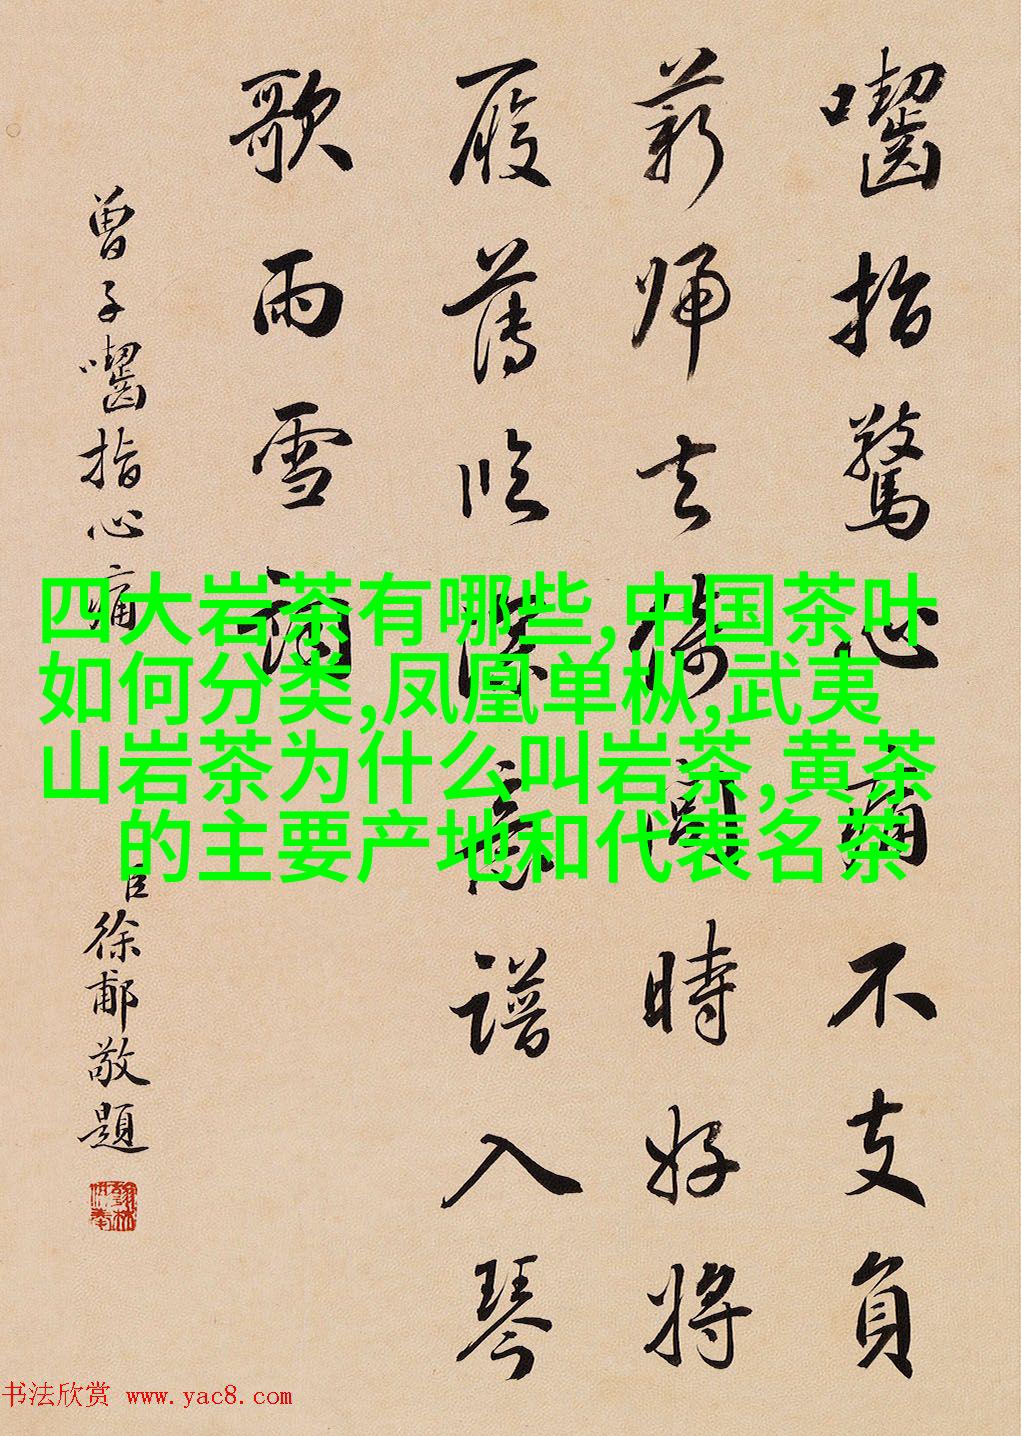 囓指驚心痛不支負
薪歸去倚閭時好將
履薄臨深意譜入琴
歌雨雪詞
曾子囓指心痛
臣徐郙敬題
四大岩茶有哪些,中国茶叶
如何分类,凤凰单枞,武夷
山岩茶为什么叫岩茶,黄茶
的主要产地和代表名茶
书法欣赏 www.yac8.com